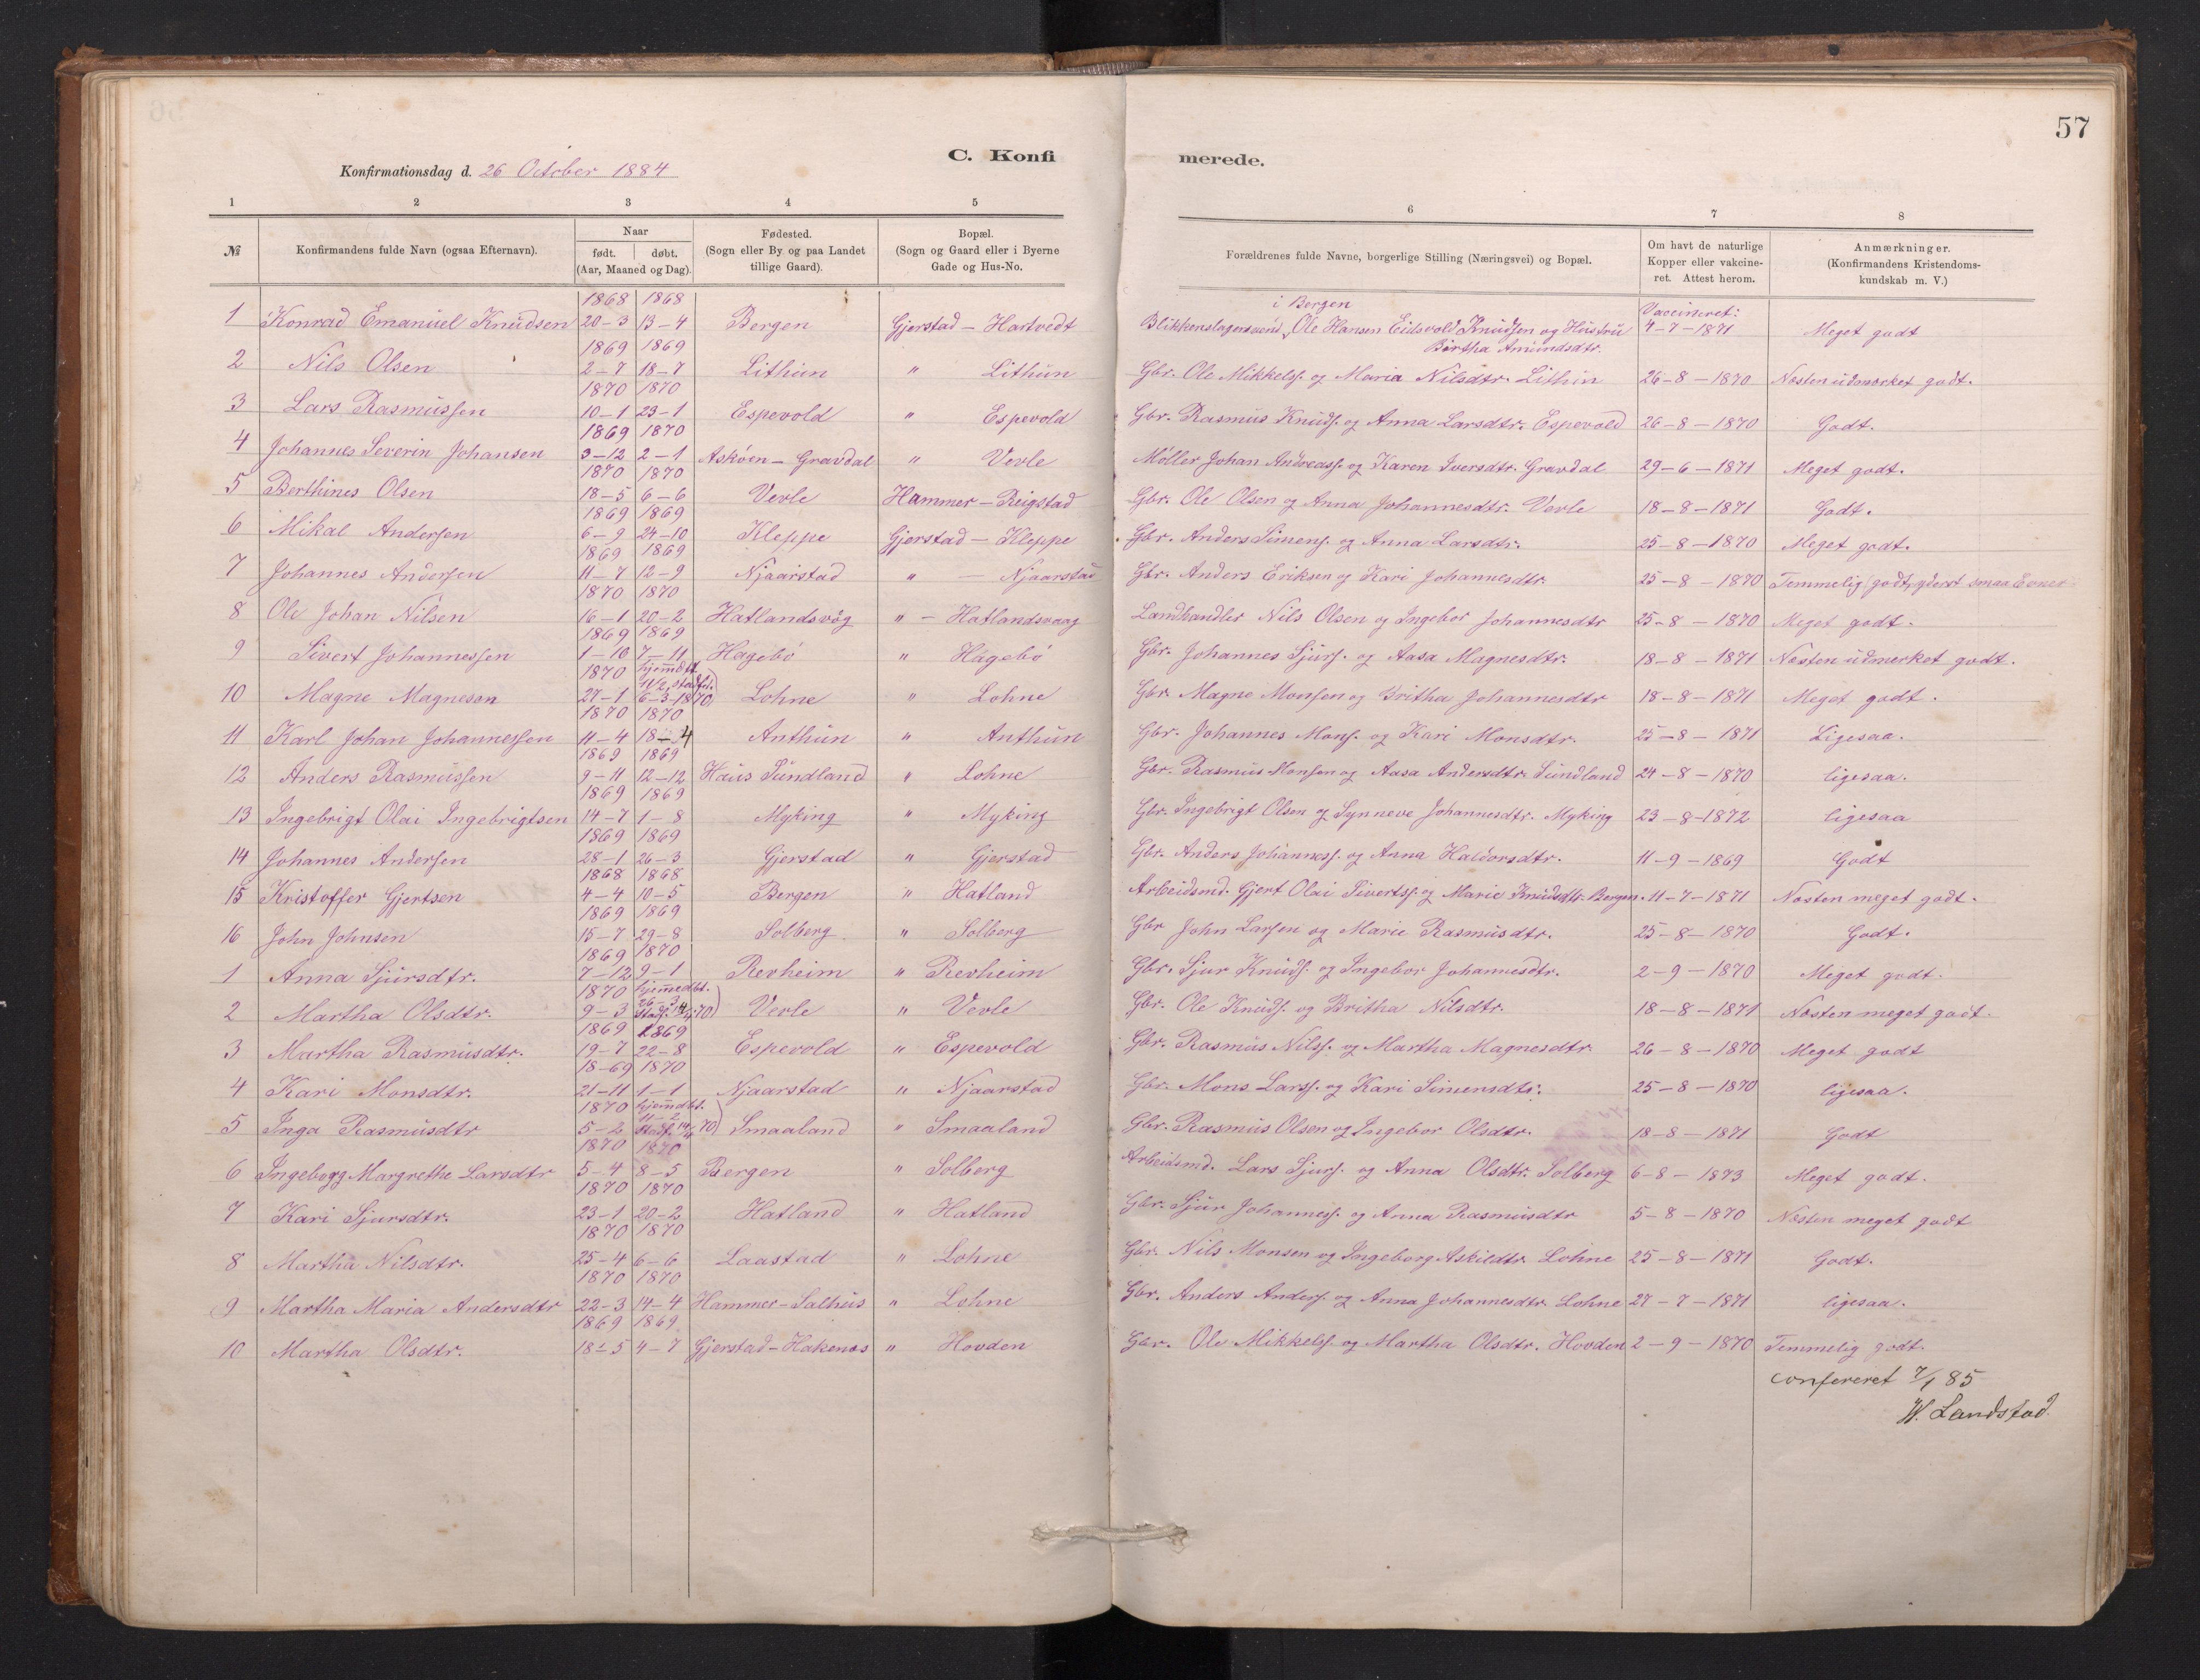 57
C. Konfi merede.
Konfirmationsdag d. 26 October 1884
1 2 3 4 5 6 7 8
№ Konfirmandens fulde Navn (ogsaa Efternavn). Naar født. døbt. (Aar, Maaned og Dag). Fødested. (Sogn eller By og paa Landet tillige Gaard). Bopæl. (Sogn og Gaard eller i Byerne Gade og Hus-No. Forældrenes fulde Navne, borgerlige Stilling (Næringsvei) og Bopæl. Om havt de naturlige Kopper eller vakcineret. Attest herom. Anmærkninger. (Konfirmandens Kristendomskundskab m. V.)
1 Konrad Emanuel Knudsen 1868 20-3 1868 13-4 Bergen Gjerstad - Hartvedt Blikkenslagersvend i Bergen Ole Hansen Eidsvold Knudsen og Hustru Birtha Amundsdtr. Vaccineret: 4-7-1871 Meget godt
2 Nils Olsen 1869 2-7 1869 18-7 Lithun " Lithun Gbr. Ole Mikkels. og Maria Nilsdtr. Lithun 26-8-1870 Næsten udmærket godt.
3 Lars Rasmussen 1870 10-1 1870 23-1 Espevold " Espevold Gbr. Rasmus Knuds. og Anna Larsdtr. Espevold 26-8-1870 Godt.
4 Johannes Severin Johansen 1869 3-12 1870 2-1 Askøen - Gravdal " Vevle Møller Johan Andreass. og Karen Iversdtr. Gravdal 29-6-1871 Meget godt.
5 Berthines Olsen 1870 18-5 1870 6-6 Vevle Hammer - Reigstad Gbr. Ole Olsen og Anna Johannesdtr. Vevle 18-8-1871 Godt.
6 Mikal Andersen 1869 6-9 1869 24-10 Kleppe Gjerstad - Kleppe Gbr. Anders Simens. og Anna Larsdtr. 25-8-1870 Meget godt.
7 Johannes Andersen 1869 11-7 1869 12-9 Njaarstad " - Njaarstad Gbr. Anders Eriksen og Kari Johannesdtr. 25-8-1870 Temmelig godt, yderst smaa Evner
8 Ole Johan Nilsen 1870 16-1 1870 20-2 Hatlandsvåg " - Hatlandsvaag Landhandler Nils Olsen og Ingebor Johannesdtr 25-8-1870 Meget godt.
9 Sivert Johannessen 1869 1-10 1869 7-11 Hagebö " Hagebö Gbr. Johannes Sjurs. og Aasa Magnesdtr. 18-8-1871 Næsten udmerket godt.
10 Magne Magnesen 1870 27-1 hjemdbt. 11/2, stadf. 6-3-1870) Lohne " Lohne Gbr. Magne Monsen og Britha Johannesdtr 18-8-1871 Meget godt.
11 Karl Johan Johannessen 1870 11-4 1870 18-4 Anthun " Anthun Gbr. Johannes Mons. og Kari Monsdtr. 25-8-1871 Ligesaa.
12 Anders Rasmussen 1869 9-11 1869 12-12 Haus Sundland " Lohne Gbr. Rasmus Monsen og Aasa Andersdtr. Sundland 24-8-1870 ligesaa.
13 Ingebrigt Olai Ingebrigtsen 1869 14-7 1869 1-8 Myking " Myking Gbr. Ingebrigt Olsen og Synneve Johannesdtr. Myking 23-8-1872 ligesaa
14 Johannes Andersen 1869 28-1 1869 26-3 Gjerstad " Gjerstad Gbr. Anders Johanness. og Anna Haldorsdtr. 11-9-1869 Godt
15 Kristoffer Gjertsen 1868 4-4 1868 10-5 Bergen " Hatland Arbeidsmd. Gjert Olai Siverts. og Marie Knudsdtr. Bergen. 11-7-1871 Næsten meget godt.
16 John Johnsen 1869 15-7 1869 29-8 Solberg " Solberg Gbr John Larsen og Marie Rasmusdtr. 25-8-1870 Godt.
1 Anna Sjursdtr. 1869 7-12 1870 9-1 Revheim " Revheim Gbr. Sjur Knuds. og Ingebor Johannesdtr. 2-9-1870 Meget godt.
2 Martha Olsdtr. 1870 9-3 hjemedbt. 26-3 Vevle " Vevle Gbr. Ole Knuds. og Britha Nilsdtr. 18-8-1871 Næsten meget godt.
3 Martha Rasmusdtr. 1869 19-7 1869 22-8 Espevold " Espevold Gbr. Rasmus Nilss. og Martha Magnesdtr. 26-8-1870 Meget godt
4 Kari Monsdtr. 18-69 21-11 1870 1-1 Njaarstad " Njaarstad Gbr. Mons Larss. og Kari Simensdtr. 25-8-1870 ligesaa.
5 Inga Rasmusdtr 1870 5-2 hjemdbt. 11-2 stadf. 14/4 70) Smaaland " Smaaland Gbr. Rasmus Olsen og Ingebor Olsdtr. 18-8-1871 Godt
6 Ingeborg Margrethe Larsdtr 1870 5-4 1870 8-5 Bergen " Solberg Arbeidsmd. Lars Sjurs. og Anna Olsdtr. Solberg 6-8-1873 Meget godt.
7 Kari Sjursdtr. 1870 23-1 1870 20-2 Hatland " Hatland Gbr. Sjur Johanness. og Anna Rasmusdtr 5-8-1870 Næsten meget godt
8 Martha Nilsdtr. 1870 25-4 1870 6-6 Laastad " Lohne Gbr. Nils Monsen og Ingeborg Askildtr. Lohne 25-8-1871 Godt.
9 Martha Maria Andersdtr 1870 22-3 1870 14-4 Hammer - Salhus " Lohne Gbr. Anders Anders. og Anna Johannesdtr. Lohne 27-7-1871 ligesaa.
10 Martha Olsdtr. 1869 18-5 1869 4-7 Gjerstad - Hakenæs " Hovden Gbr. Ole Mikkels. og Martha Olsdtr. Hovden 2-9-1870 Temmelig godt.
confereret 7/1 85
W. Landstad.